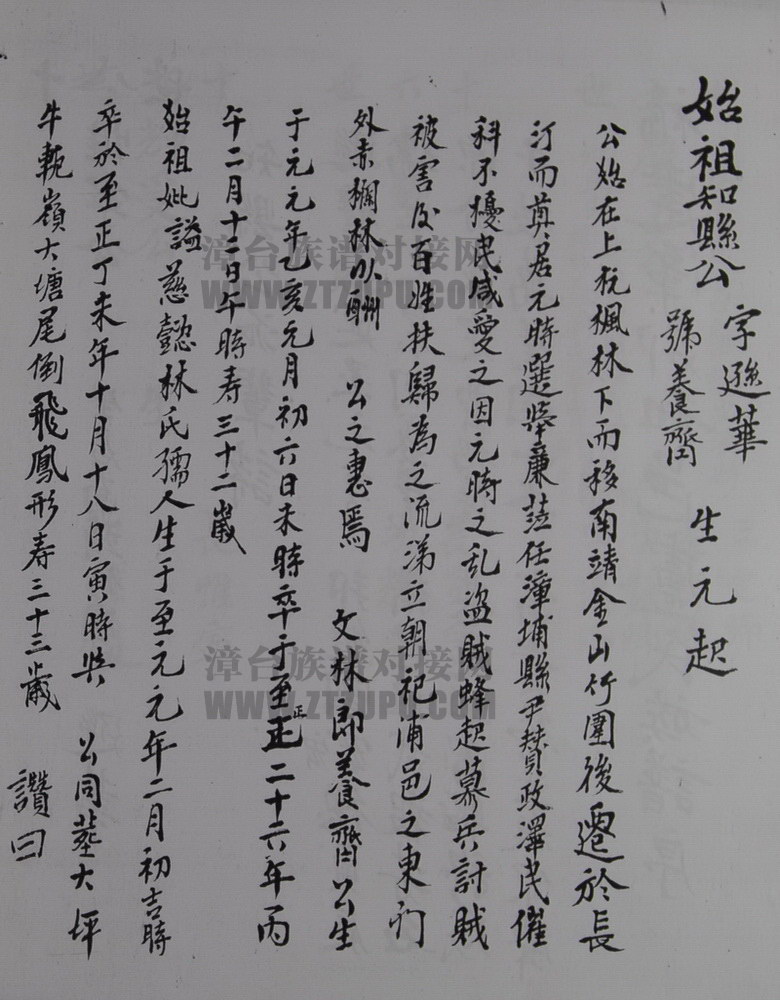 始祖知縣公 字遜華 號養齊 生元起
公始在上杭楓林下而移南靖金山竹圍後遷於長
汀而奠居元時選舉廉蒞任漳埔縣尹贊政澤民催
科不擾民咸愛之因元時之乱盜賊蜂起募兵討賊
被害后百姓扶歸為之流涕立朝祀浦邑之東門
外赤欄林以酬 公之惠焉 文林郎養齊公生
于元元年乙亥元月初六日未時卒于至正二十六年丙
正
午二月十二日午時寿三十二歲
始祖妣謚慈懿林氏孺人生于至元元年二月初吉時
卒於至正丁未年十月十八日寅時與 公同墓大坪
牛軛嶺大塘尾倒飛鳳形寿三十三歲 讚曰
漳台族谱对接网
WWW.ZTZUPU.COM
漳台族谱对接网
WWW.ZTZUPU.COM